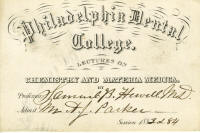 Philadelphia Dental
College.
LECTURES ON
CHEMISTRY AND MATERIA MEDICA.
BY
Professor Samuel B. Howell, M.D.
Admit Mr A. J. Parker
Session 1883 & 84